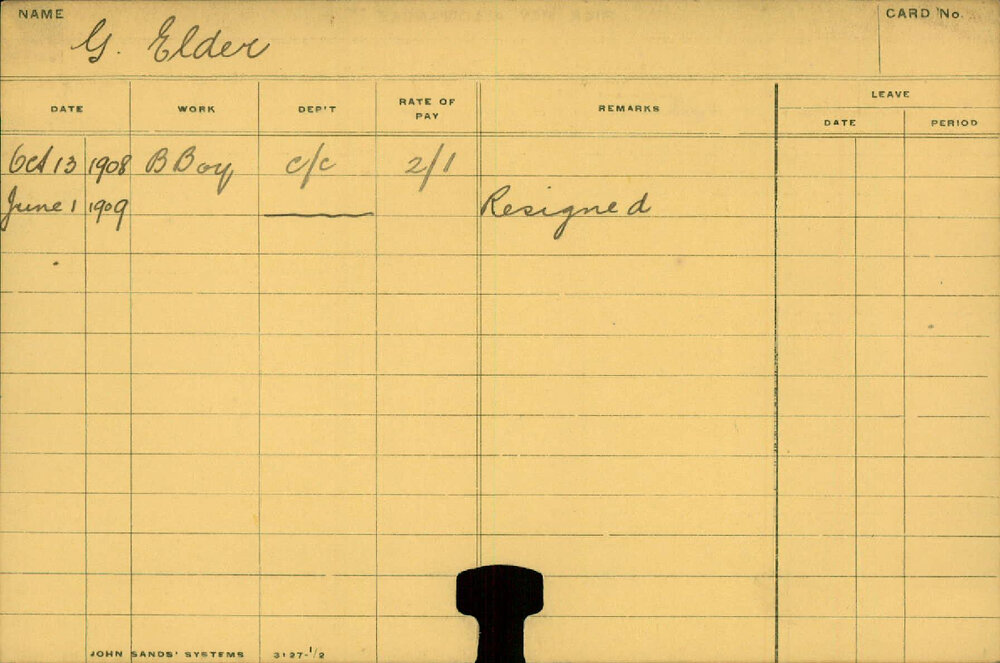 NAME
G. Elder
CARD No.
DATE WORK DEP'T RATE OF PAY REMARKS LEAVE
DATE PERIOD
Oct 13 1908 B Boy c/c 2/1
June 1 1909 Resigned
JOHN SANDS' SYSTEMS 3127-1/2